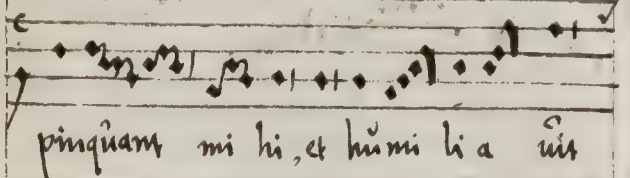 pinquant mi hi, et humi li a uit